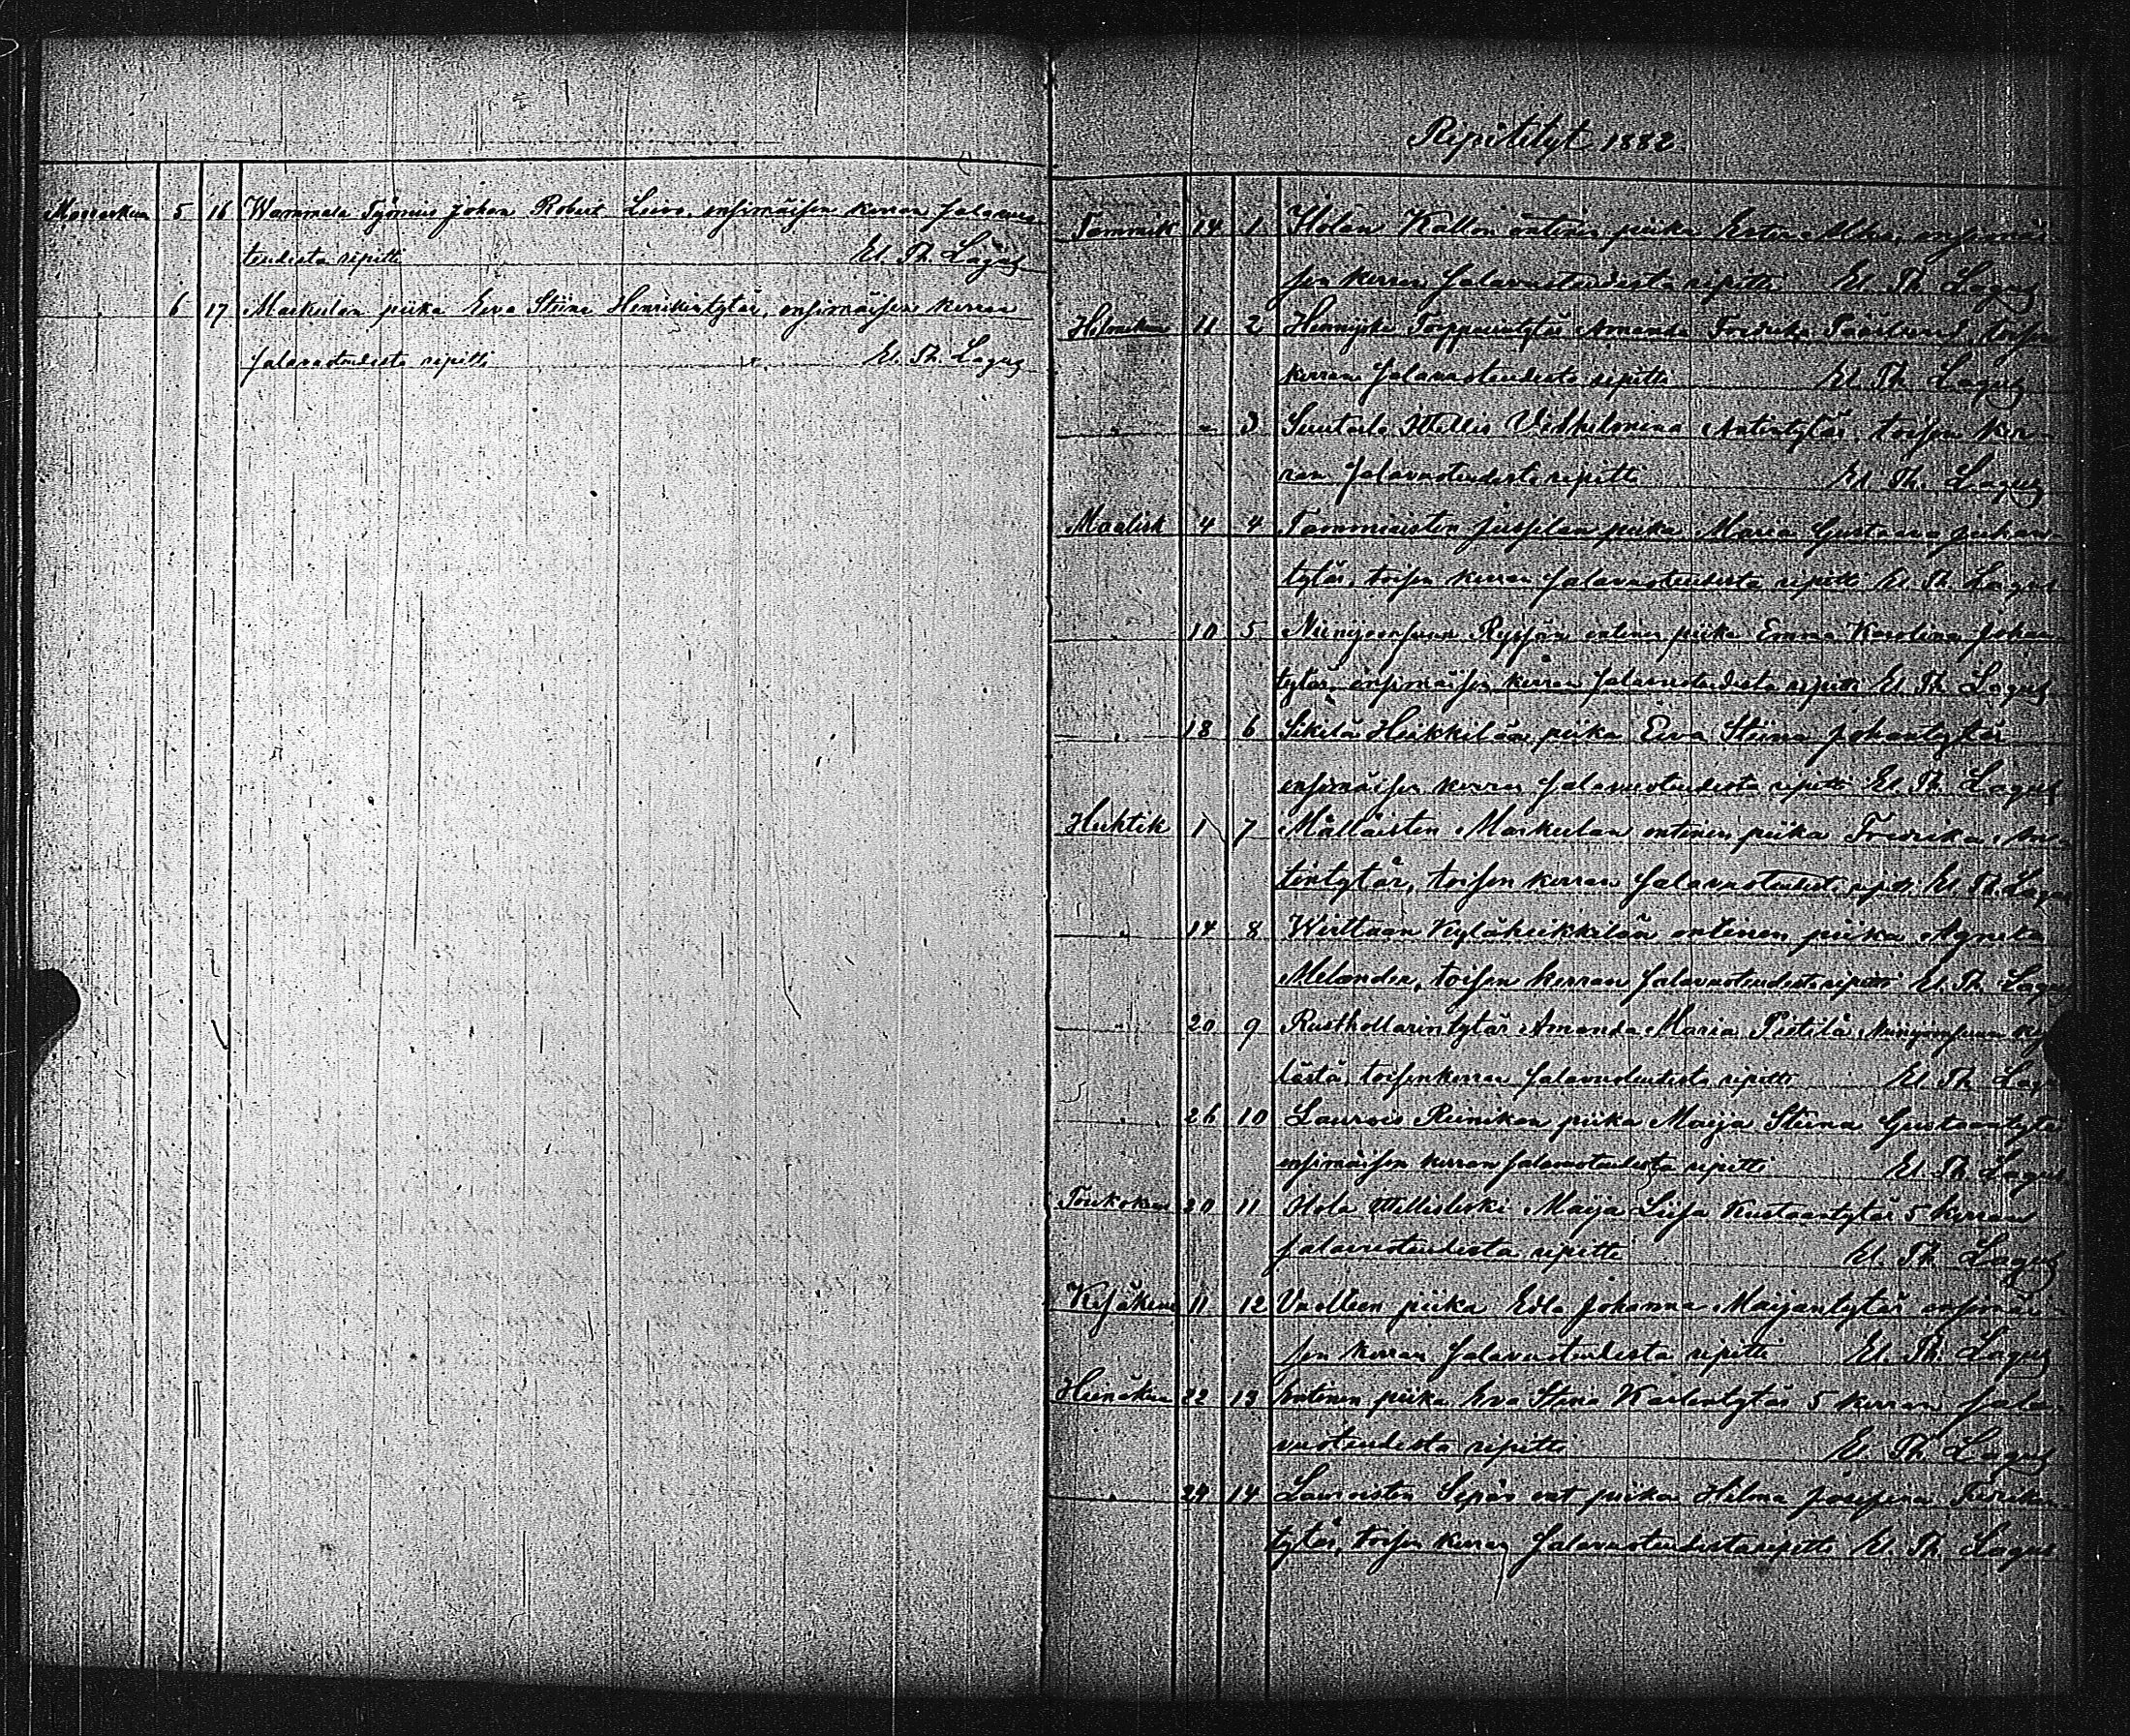 Marraskuu 5 16 Wammala Työmies Johan Robert Leivo, ensimäisen kerran salavuo
teudesta ripitti El. Th. Lagus
" 6 17 Markulan piika Eva Stiina Henrikintytär, ensimäisen kerran
salavuoteudesta ripitti El. Th. Lagus
Ripitetyt 1882
Tammik 14 1 Holan Kallon entinen piika Ester ensimäi
sen kerran salavuoteudesta ripitti El. Th. Lagus
Helmikuu 11 2 Hennijoki Torpparintytär Amanda Fredrika toisen
kerran salavuoteudesta ripitti El. Th. Lagus
" " 3 Suutarla Itellis Vilhelmina Antintytär, toisen ker
ran salavuoteudesta ripitti El. Th. Lagus
Maalisk 4 4 Tammiaisten Jussilan piika Maria Gustaava Juhan
tytär, toisen kerran salavuoteudesta ripitti El. Th. Lagus
" 10 5 Niinijoensuun entinen piika Emma Karolina Johan
tytär, ensimäisen kerran salavuoteudesta ripitti El. Th. Lagus
" 18 6 Sikilä Heikkilän piika Eeva Stiina Johantytär
ensimäisen kerran salavuoteudesta ripitti El. Th. Lagus
Huhtik 1 7 Mälläisten Markulan entinen piika Fredrika An
tintytär, toisen kerran salavuoteudest. rip. El. Th. Lagus
" 14 8 Wirttaan Kyläheikkilän entinen piika Agneta
Melander, toisen kerran salavuoteudesta ripitti El. Th. Lagus
" 20 9 Rusthollarintytär Amanda Maria Pietilä Niinijoensuun ky
lästä, toisen kerran salavuoteudesta ripitti El. Th. Lagus
" 26 10 Laurois Reinikan piika Maija Stiina Gustaantytä
ensimäisen kerran salavuoteudesta ripitti El. Th. Lagus
Toukokuu 20 11 Hola Itellisleski Maija Liisa Kustaantytär 5 kerran
salavuoteudesta ripitti El. Th. Lagus
Kesäkuu 11 12 piika Edla Johanna Maijantytär ensimäi
sen kerran salavuoteudesta ripitti El. Th. Lagus
Heinäkuu 22 13 Entinen piika Eva Stina Karlentytär 5 kerran sala
vuoteudesta ripitti El. Th. Lagus
" 24 14 Lauroisten Sepän ent piika Hilma Josefina
tytär, toisen kerran salavuoteudesta ripitti El. Th. Lagus